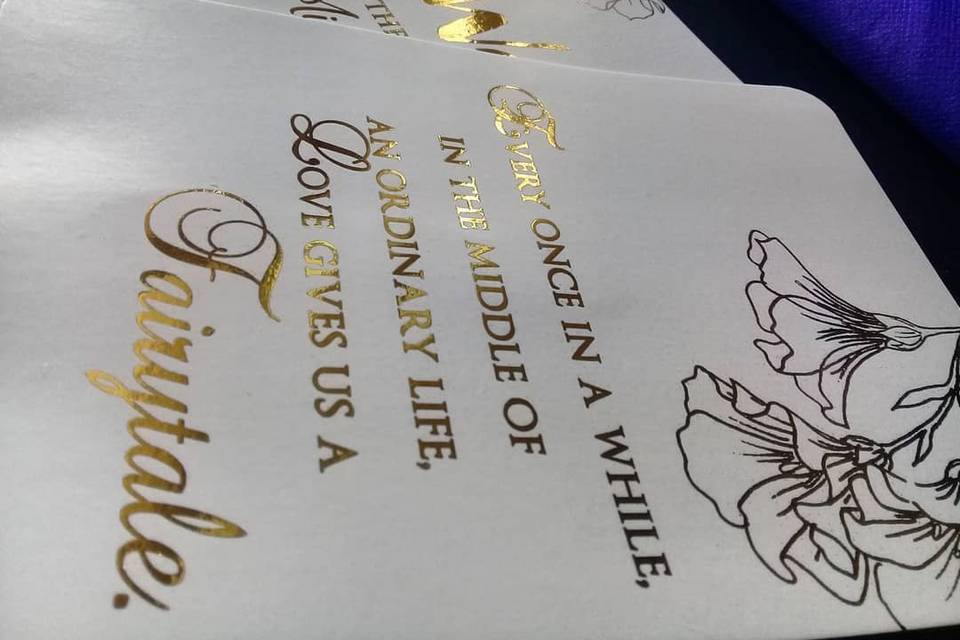 Every once in a while,
in the middle of
an ordinary life,
Love gives us a
Fairytale.
W
the
Mi